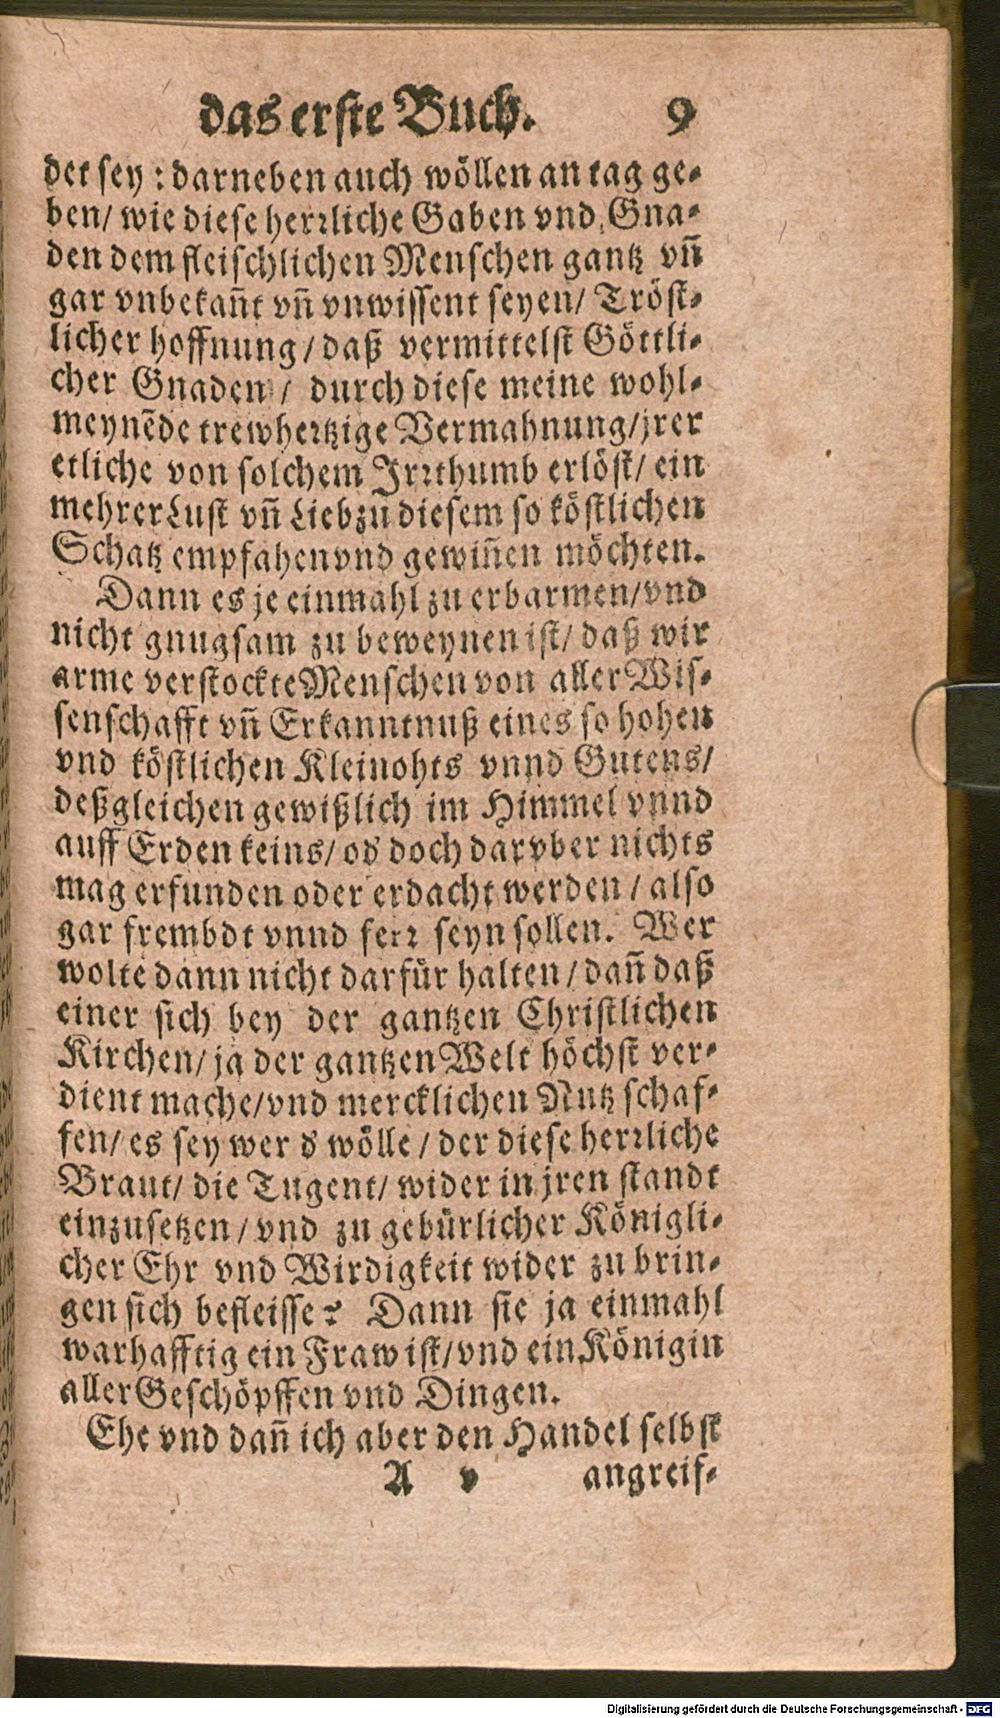 das erste Buch. 9
det sey : darneben auch wöllen an tag ge-
ben/ wie diese herrliche Gaben vnd Gna-
den dem fleischlichen Menschen gantz vñ
gar vnbekañt vñ vnwissent seyen/ Tröst-
licher hoffnung/ daß vermittelst Göttli-
cher Gnaden/ durch diese meine wohl-
meynẽde trewhertzige Vermahnung/ jrer
etliche von solchem Irrthumb erlöst/ ein
mehrer Lust vñ Lieb zu diesem so köstlichen
Schatz empfahen vnd gewiñen möchten.
Dann es je einmahl zu erbarmen/ vnd
nicht gnugsam zu beweynen ist/ daß wir
arme verstockte Menschen von aller Wis-
senschafft vñ Erkanntnuß eines so hohen
vnd köstlichen Kleinohts vnnd Gutens/
deßgleichen gewißlich im Himmel vnnd
auff Erden keins/ ob doch darvber nichts
mag erfunden oder erdacht werden/ also
gar frembdt vnnd ferr seyn sollen. Wer
wolte dann nicht darfür halten/ dañ daß
einer sich bey der gantzen Christlichen
Kirchen/ ja der gantzen Welt höchst ver-
dient mache/ vnd mercklichen Nutz schaf-
fen/ es sey wer d wölle/ der diese herrliche
Braut/ die Tugent/ wider in jren standt
einzusetzen/ vnd zu gebürlicher Königli-
cher Ehr vnd Wirdigkeit wider zu brin-
gen sich befleisse? Dann sie ja einmahl
warhafftig ein Fraw ist/ vnd ein Königin
aller Geschöpffen vnd Dingen.
Ehe vnd dañ ich aber den Handel selbst
A v angreif-
Digitalisierung gefördert durch die Deutsche Forschungsgemeinschaft - DFG